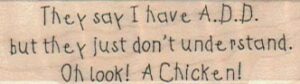 They say I have A.D.D.
but they just don't understand.
Oh look! A Chicken!